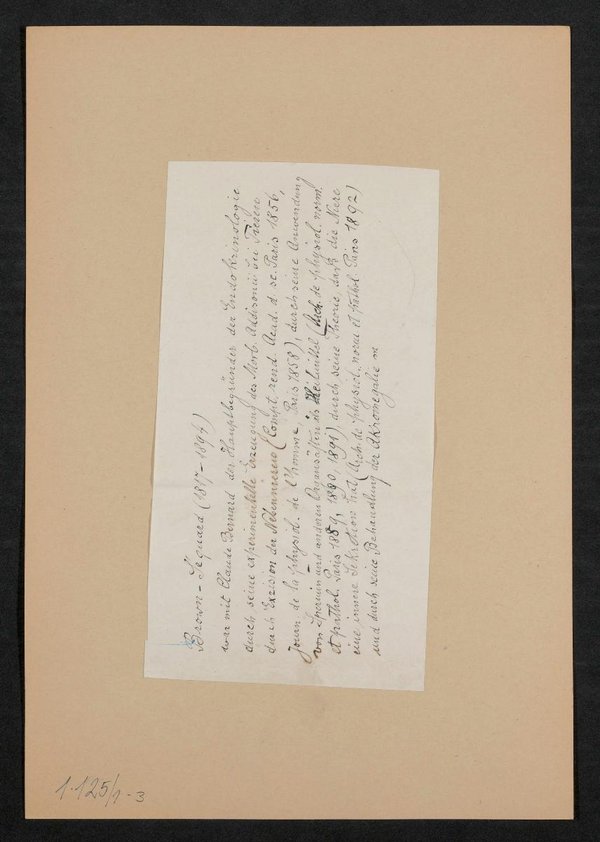 Brown-Sequard (1817-1894)
war mit Claude Bernard der Hauptbegründer der Endokrinologie
durch seine experimentelle Erzeugung des Morb. Addisonii bei Tieren
durch Exzision der Nebennieren (Compt. rend. Acad. d. sc. Paris 1856,
Journ. de la physiol. de l'homme, Paris 1858), durch seine Anwendung
von Spermin und anderen Organsäften als Heilmittel (Arch. de physiol. norm.
et pathol. Paris 1889, 1890, 1891), durch seine Theorie, daß die Niere
eine innere Sekretion hat (Arch. de physiol. norm. et pathol. Paris 1892)
und durch seine Behandlung der Akromegalie m
1.125/1-3